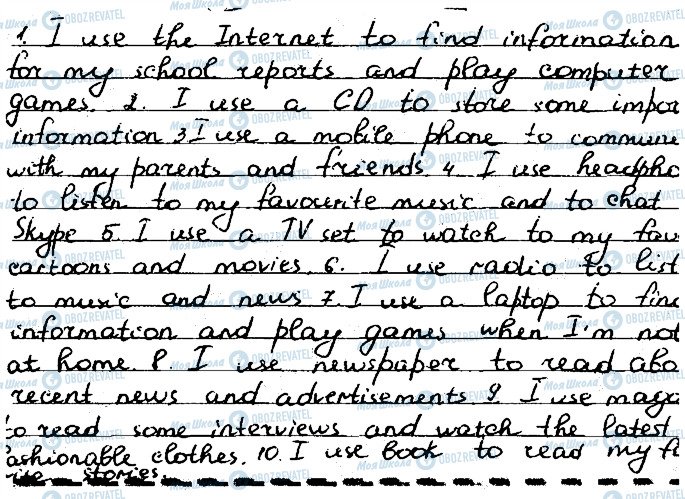 1. I use the Internet to find information
for my school reports and play computer
games. 2. I use a CD to store some impor
information 3. I use a mobile phone to commun
with my parents and friends. 4. I use headpho
to listen to my favourite music and to chat
Skype 5. I use a TV set to watch to my fav
cartoons and movies. 6. I use radio to list
to music and news 7. I use a laptop to find
information and play games when I'm not
at home. 8. I use newspaper to read abo
recent news and advertisements. 9. I use maga
to read some interviews and watch the latest
fashionable clothes. 10. I use book to read my
stories.